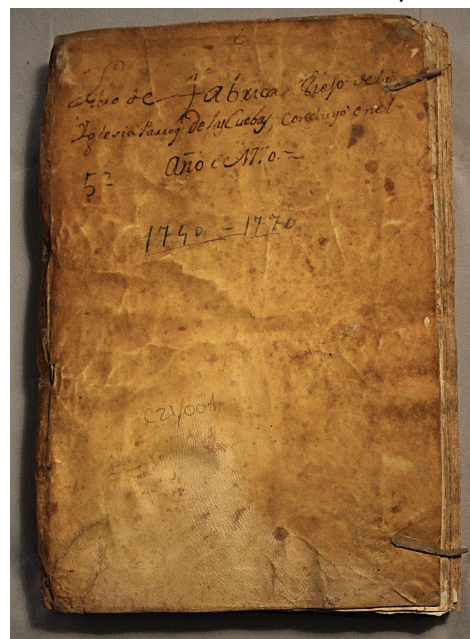 Libro de Fabrica Viejo de la
Iglesia Parroq de las Cuebas, concluyó en el
Año de 1770.
5º
1740 - 1770
C21/001